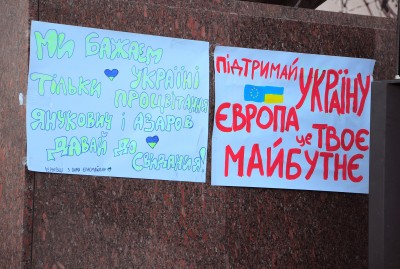 МИ БАЖАЄМ
ТІЛЬКИ УКРАЇНІ
ПРОЦВІТАННЯ
ЯНУКОВИЧ І АЗАРОВ
ДАВАЙ ДО
СВИДАНИЯ!
ПІДТРИМАЙ
УКРАЇНУ
ЄВРОПА
це ТВОЄ
МАЙБУТНЄ